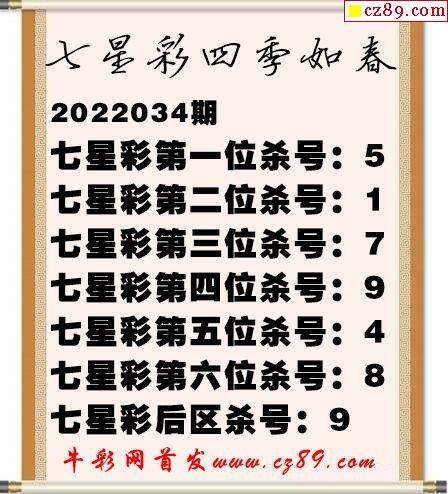 cz89.com
七星彩四季如春
2022034期
七星彩第一位杀号：5
七星彩第二位杀号：1
七星彩第三位杀号：7
七星彩第四位杀号：9
七星彩第五位杀号：4
七星彩第六位杀号：8
七星彩后区杀号：9
牛彩网首发www.cz89.com